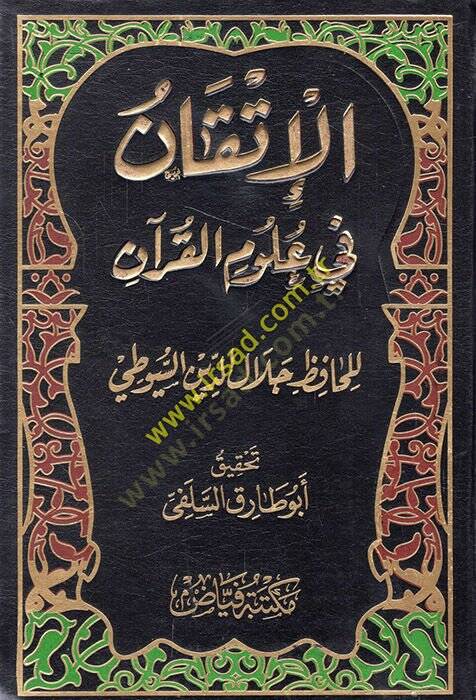 الإِتْقَانُ
فِي عُلُومِ القُرْآنِ
للحَافِظِ جَلَالِ الدِّينِ السُّيُوطِي
تَحْقِيق
أَبُو طَارِق السَّلَفِيّ
مَكتَبَة فَيَّاض
www.irsad.com.tr
www.irsad.com.tr